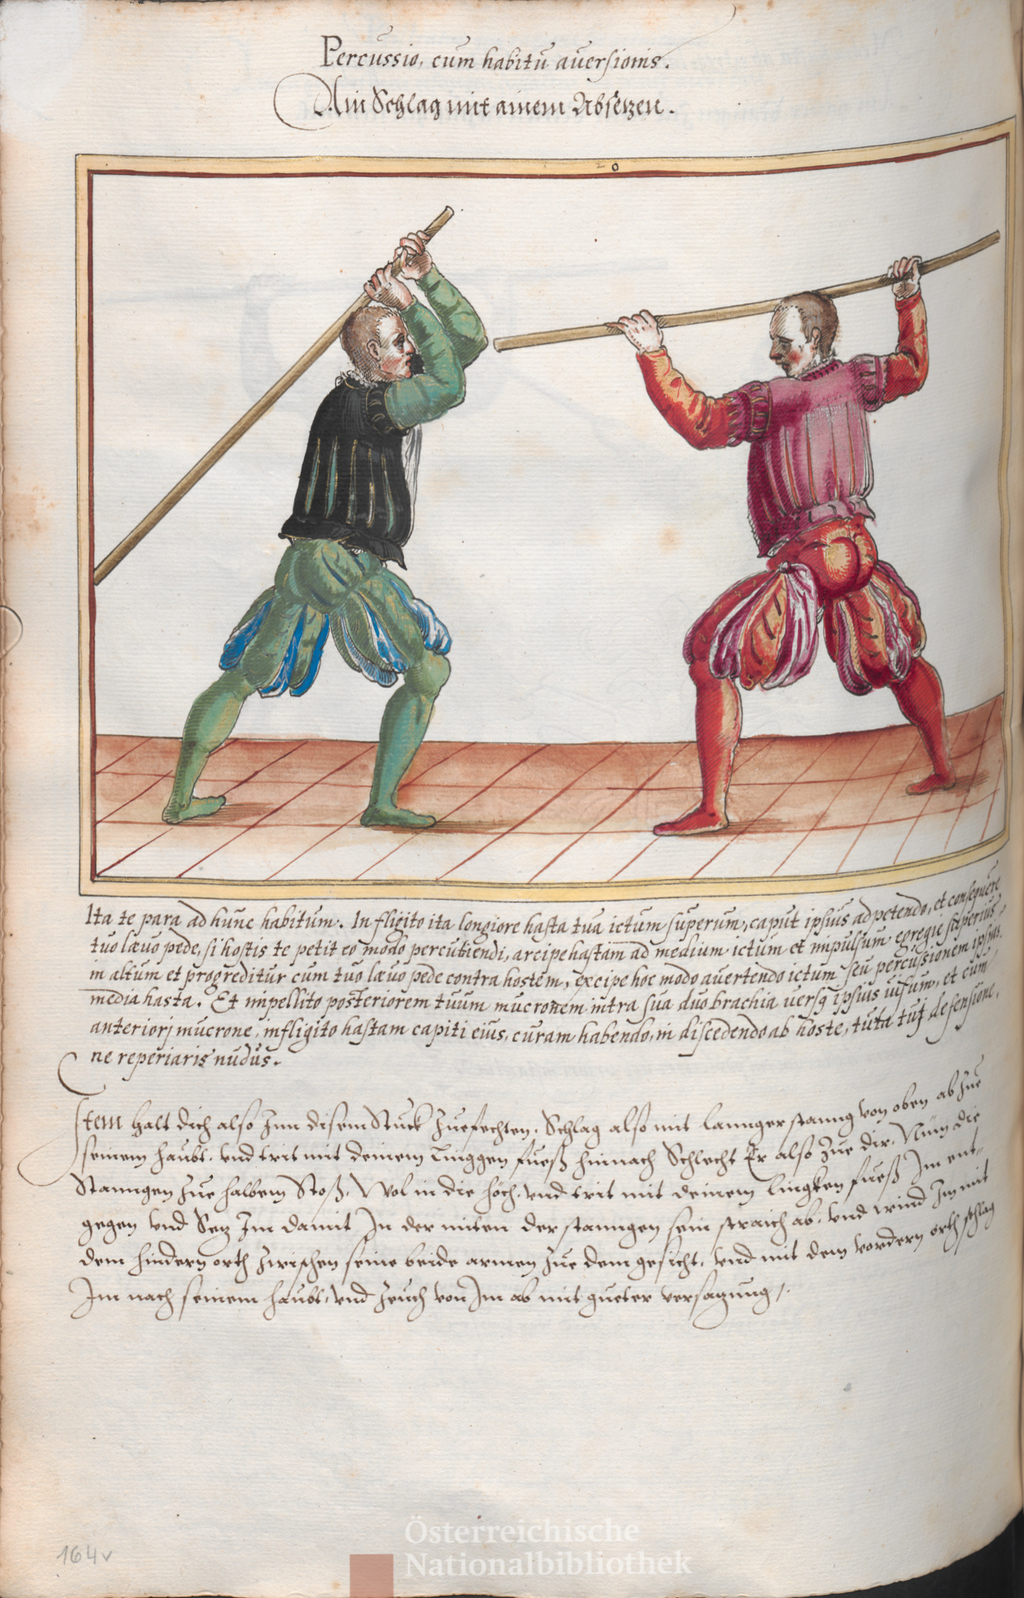 Percussio, cum habitu aversionis.
Ain Schlag mit ainem Absetzen.
20
Ita te para ad hunc habitum. Infligito ita longiore hasta tua ictum superum, caput ipsius adpetendo, et consequere
tuo laevo pede, si hostis te petit eo modo percutiendi, arcipe hastam ad medium ictum et impulsum egregie superius
in altum et progreditur cum tuo laevo pede contra hostem, excipe hoc modo avertendo ictum seu percussionem ipsius,
media hasta. Et impellito posteriorem tuum mucronem intra sua duo brachia versq ipsius visum, et cum
anteriorj mucrone, infligito hastam capiti eius, curam habendo, in discedendo ab hoste, tuta tuj defensione,
ne reperiaris nudus.
Item halt dich also Inn disem Stuck Zuefechten, Schlag also mit lannger stanng von oben ab zue
seinem haubt, und trit mit deinem Linggen fuess hinnach Schlecht Er also Zue dir, Nim die
Stanngen Zue halbem Stoß, Wol in die hoch, und trit mit deinem lingken fuess Im ent-
gegen und Setz Im damit In der miten der stanngen sein straich ab, und wind Im mit
dem hindern orth zwischen seine beide armen Zue dem gesicht, und mit dem vordern orth schlag
Im nach seinem haubt, und Zeuch von Im ab mit gueter versatzung
164v
Österreichische
Nationalbibliothek